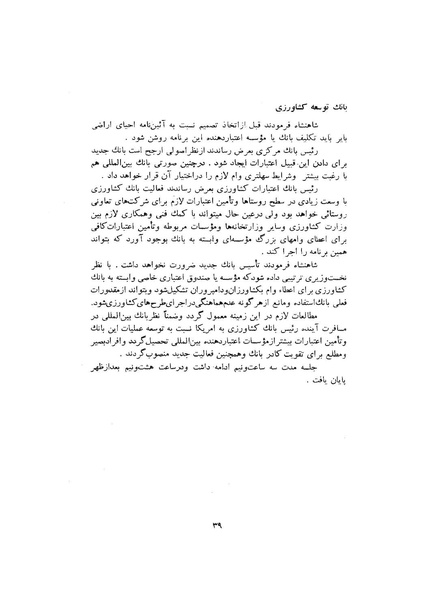 بانك توسعه كشاورزی
شاهنشاه فرمودند قبل ازاتخاذ تصمیم نسبت به آئین‌نامه احیای اراضی
بایر باید تكلیف بانك یا مؤسسه اعتباردهنده این برنامه روشن شود .
رئیس بانك مركزی بعرض رساندند ازنظراصولی ارجح است بانك جدید
برای دادن این قبیل اعتبارات ایجاد شود . درچنین صورتی بانك بین‌المللی هم
با رغبت بیشتر وشرایط سهلتری وام لازم را دراختیار آن قرار خواهد داد .
رئیس بانك اعتبارات كشاورزی بعرض رساندند فعالیت بانك كشاورزی
با وسعت زیادی در سطح روستاها وتأمین اعتبارات لازم برای شركت‌های تعاونی
روستائی خواهد بود ولی درعین حال میتواند با كمك فنی وهمكاری لازم بین
وزارت كشاورزی وسایر وزارتخانه‌ها ومؤسسات مربوطه وتأمین اعتبارات‌كافی
برای اعطای وامهای بزرگ مؤسسه‌ای وابسته به بانك بوجود آورد كه بتواند
همین برنامه را اجرا كند .
شاهنشاه فرمودند تأسیس بانك جدید ضرورت نخواهد داشت . با نظر
نخست‌وزیری ترتیبی داده شودكه مؤسسه یا صندوق اعتباری خاصی وابسته به بانك
كشاورزی برای اعطاء وام بكشاورزان‌ودامپروران تشكیل‌شود وبتواند ازمقدورات
فعلی بانك‌استفاده ومانع ازهرگونه عدم‌هماهنگی‌دراجرای‌طرح‌های‌كشاورزی‌شود.
مطالعات لازم در این زمینه معمول گردد وضمناً نظربانك بین‌المللی در
مسافرت آینده رئیس بانك كشاورزی به امریكا نسبت به توسعه عملیات این بانك
وتأمین اعتبارات بیشترازمؤسسات اعتباردهنده بین‌المللی تحصیل‌گردد وافرادبصیر
ومطلع برای تقویت كادر بانك وهمچنین فعالیت جدید منصوب‌گردند .
جلسه مدت سه ساعت‌ونیم ادامه داشت ودرساعت هشت‌ونیم بعدازظهر
پایان یافت .
۳۹